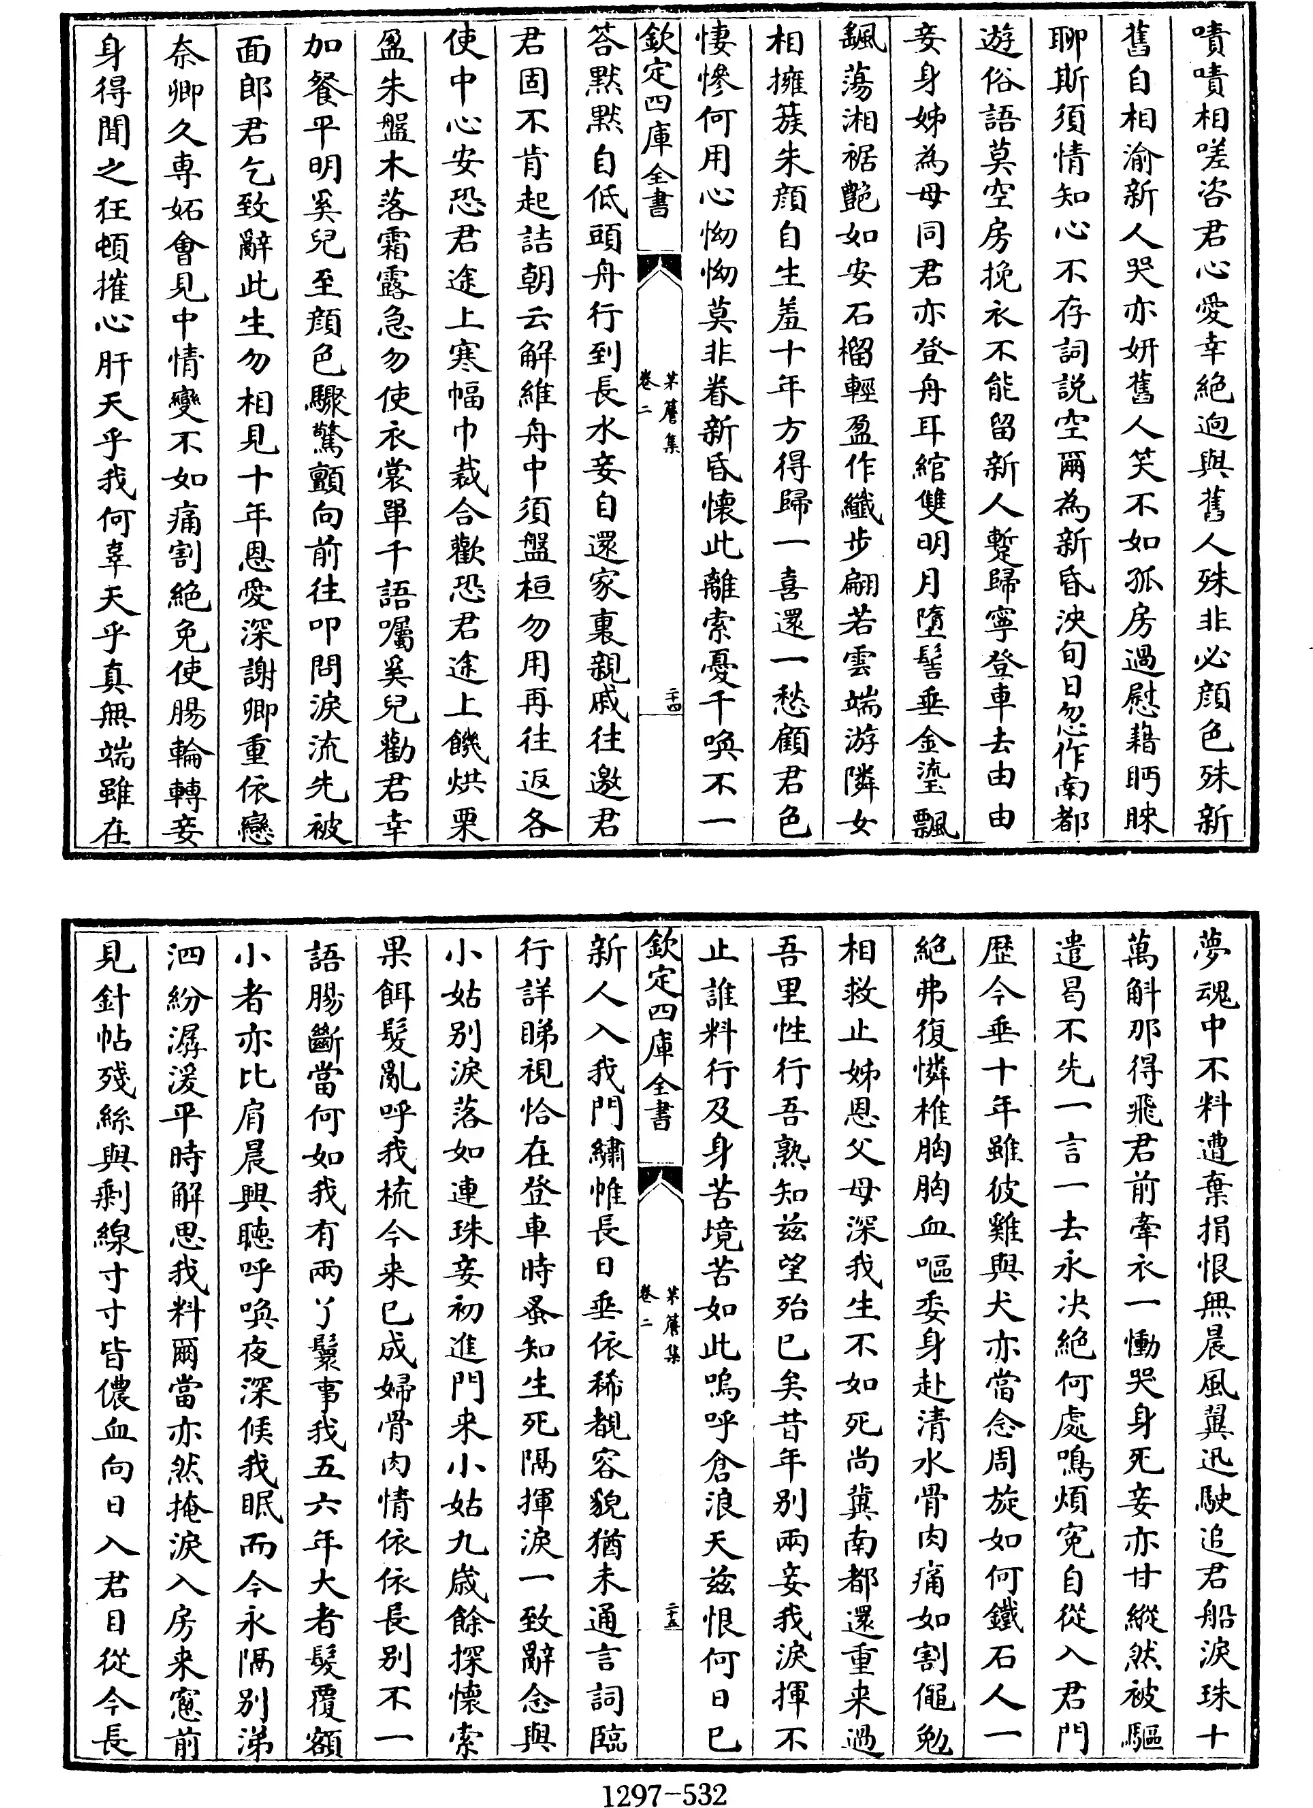 嘖嘖相嗟咨君心愛幸絶逈與舊人殊非必顔色殊新
舊自相渝新人哭亦妍舊人笑不如孤房過慰藉眄睞
聊斯須情知心不存詞説空爾為新昏浹旬日忽作南都
遊俗語莫空房挽衣不能留新人蹔歸寧登車去由由
妾身姊為母同君亦登舟耳綰雙明月墮髻垂金瑬飄
飄蕩湘裾艶如安石榴輕盈作纖步翩若雲端游隣女
相擁蔟朱顔自生羞十年方得歸一喜還一愁顧君色
悽慘何用心怮怮莫非眷新昏懷此離索憂千喚不一
欽定四庫全書
某簷集
卷二
二十四
答黙黙自低頭舟行到長水妾自還家裏親戚往邀君
君固不肯起詰朝云解維舟中須盤桓勿用再往返各
使中心安恐君途上寒幅巾裁合歡恐君途上饑烘栗
盈朱盤木落霜露急勿使衣裳單千語囑奚兒勸君幸
加餐平明奚兒至顔色驟驚顫向前往叩問淚流先被
面郎君乞致辭此生勿相見十年恩愛深謝卿重依戀
奈卿久専妬會見中情變不如痛割絶免使腸輪轉妾
身得聞之狂頓摧心肝天乎我何辜天乎真無端雖在
夢魂中不料遭棄捐恨無晨風翼迅駛追君船淚珠十
萬斛那得飛君前牽衣一慟哭身死妾亦甘縱然被驅
遣曷不先一言一去永決絶何處鳴煩寃自從入君門
歴今垂十年雖彼雞與犬亦當念周旋如何鐵石人一
絶弗復憐椎胸胸血嘔委身赴清水骨肉痛如割僶勉
相救止姊恩父母深我生不如死尚冀南都還重来過
吾里性行吾熟知兹望殆已矣昔年别兩妾我淚揮不
止誰料行及身苦境苦如此嗚呼倉浪天兹恨何日已
欽定四庫全書
某簷集
卷二
二十五
新人入我門繡帷長日垂依稀覩容貌猶未通言詞臨
行詳睇視恰在登車時蚤知生死隔揮淚一致辭念與
小姑别淚落如連珠妾初進門来小姑九歳餘探懷索
果餌髮亂呼我梳今来已成婦骨肉情依依長别不一
語腸斷當何如我有兩丫鬟事我五六年大者髮覆額
小者亦比肩晨興聽呼喚夜深候我眠而今永隔别涕
泗紛潺湲平時解思我料爾當亦然掩淚入房来窓前
見針帖殘絲與剩線寸寸皆儂血向日入君目從今長
1297-532